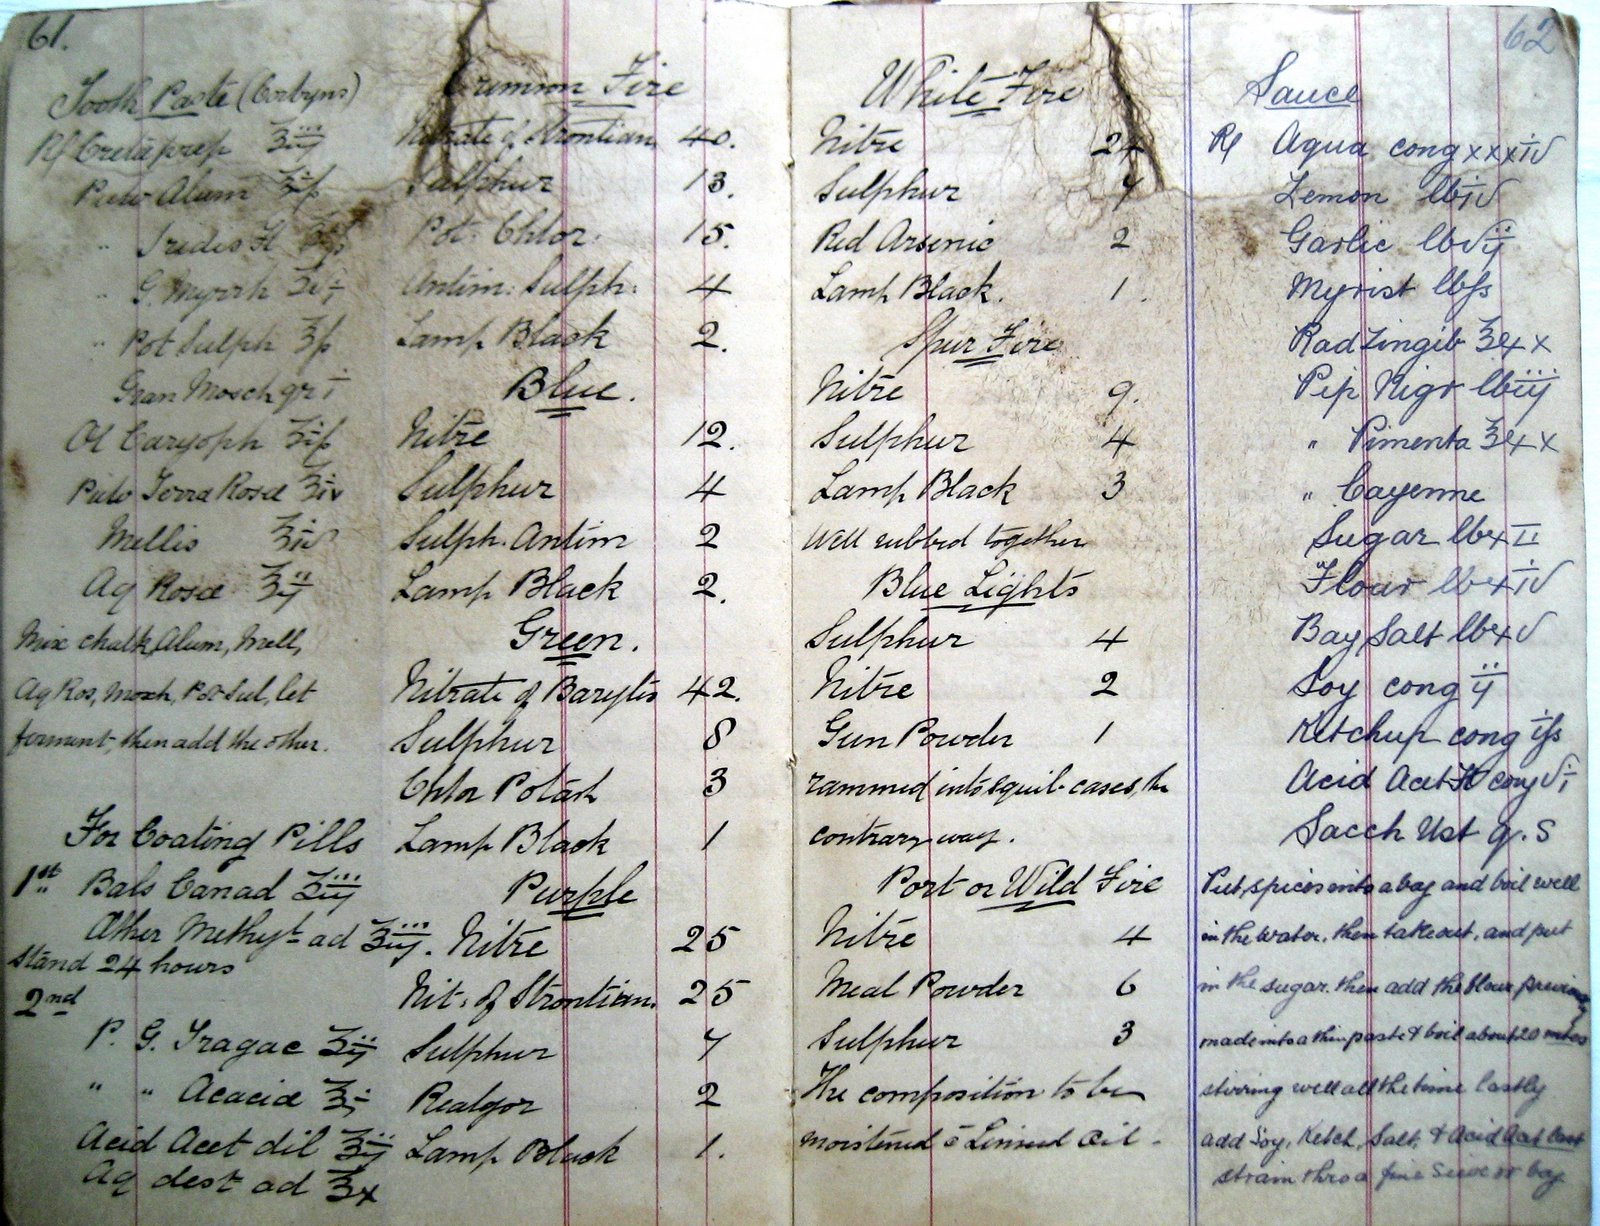 61.
Tooth Paste (Corbyns)
Rx Creta prep ʒiij
Pulv Alum
" Iridis Fl
" G. Myrrh
" Pot Sulph
Gran Mosch gr i
Ol Caryoph
Pulv Terra Rosæ ʒiv
Mellis ʒiv
Aq Rosæ ʒij
Mix chalk, Alum, Mell,
Aq Ros, Mosch, Pot Sul, let
ferment, then add the other.
For Coating Pills
1st Bals Canad ʒiij
Æther Methyt ad ʒiij.
Stand 24 hours
2nd
P. G. Tragac ʒij
" " Acaciæ ʒi
Acid Acet dil ʒij
Aq dest ad ʒx
Crimson Fire
Nitrate of Strontian 40.
Sulphur 13.
Pot: Chlor: 15.
Antim: Sulph: 4
Lamp Black 2.
Blue.
Nitre 12.
Sulphur 4
Sulph. Antim 2
Lamp Black 2.
Green.
Nitrate of Barytis 42.
Sulphur 8
Chlor Potash 3
Lamp Black 1
Purple
Nitre 25
Nit: of Strontian. 25
Sulphur 7
Realgor 2
Lamp Black 1.
62
White Fire
Nitre 24
Sulphur 7
Red Arsenic 2
Lamp Black. 1.
Spur Fire
Nitre 9.
Sulphur 4
Lamp Black 3
Well rubbed together
Blue Lights
Sulphur 4
Nitre 2
Gun Powder 1
rammed into squib-cases, the
contrary way.
Port or Wild Fire
Nitre 4
Meal Powder 6
Sulphur 3
The composition to be
moistened c̄ Linseed Oil -
Sauce
Rx Aqua cong xxxiv
Lemon lb iv
Garlic lb vij
Myrist lb ſs
Rad Zingib ʒxx
Pip Nigr lb iij
" Pimenta ʒxx
" Cayenne
Sugar lb xII
Flour lb xiv
Bay Salt lb xv
Soy cong ij
Ketchup cong iſs
Acid Acet Ft cong vi
Sacch Ust q.s
Put spices into a bag and boil well
in the water, then take out, and put
in the sugar. then add the flour previously
made into a thin paste & boil about 20 mtes
stirring well all the time lastly
add Soy, Ketch, Salt, & Acid Acet last
strain thro a fine sieve or bag